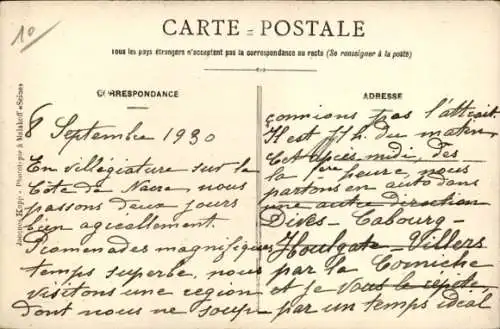 10
CARTE - POSTALE
Tous les pays étrangers n'acceptent pas la correspondance au recto (Se renseigner à la poste)
CORRESPONDANCE
ADRESSE
Jacques Kopp - Photot-pur à Malakoff (Seine)
8 Septembre 1930
En villégiature sur la
Côte de Nacre, nous
passons deux jours
bien agréablement.
Promenades magnifiques
temps superbe, nous
visitons une region
dont nous ne soup
çonnions pas l'attrait.
Il est 11 h. du matin
Cet après midi, dès
la 1ère heure, nous
partons en auto dans
une autre direction
Dives - Cabourg -
Houlgate - Villers
par la Corniche
et je vous le répète,
par un temps idéal